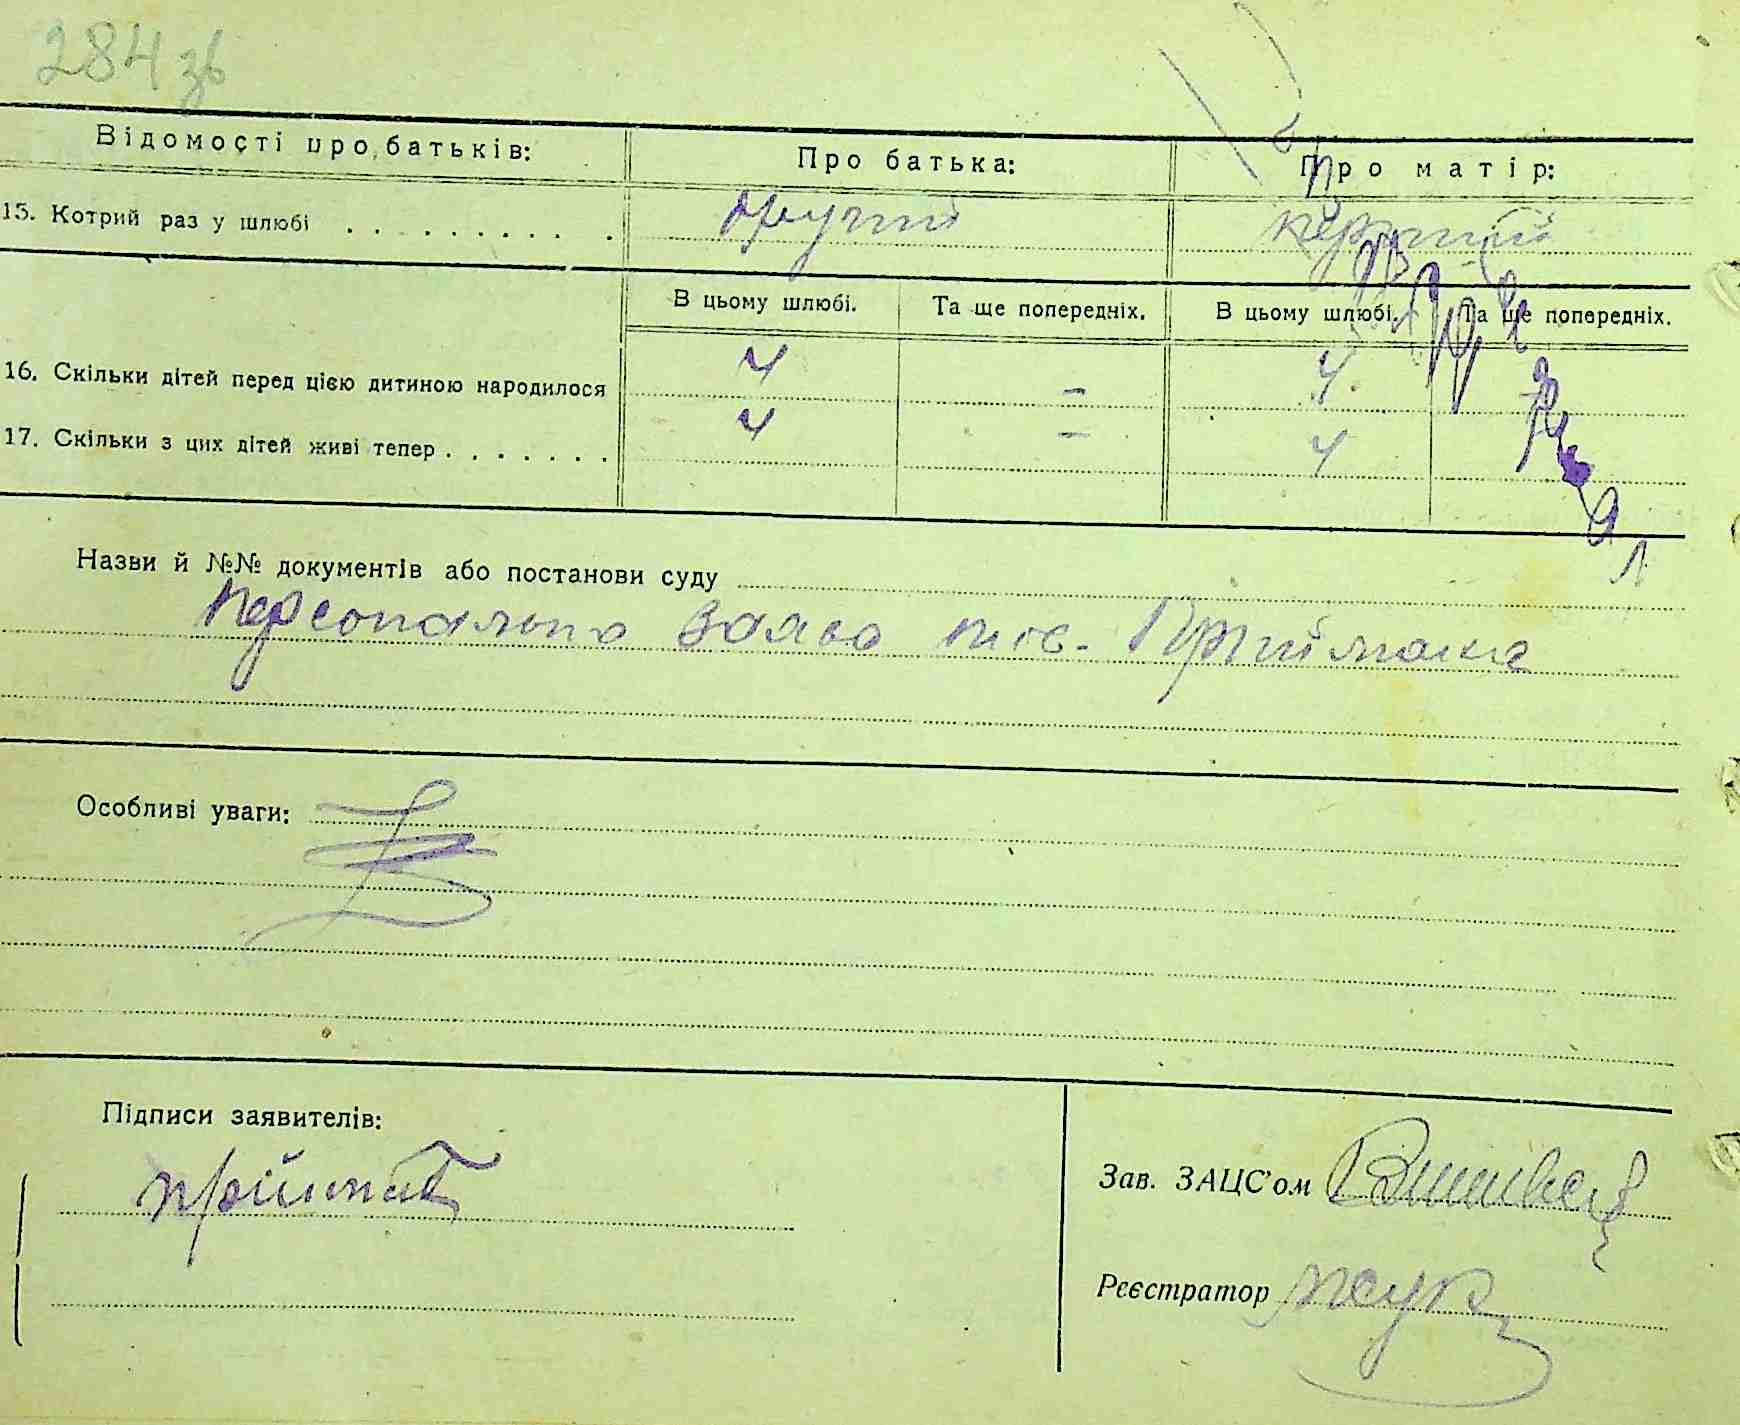 284 зв
Відомості про батьків: Про батька: Про матір:
15. Котрий раз у шлюбі . . . . . . . . . . другий перший
В цьому шлюбі. Та ще попередніх. В цьому шлюбі. Та ще попередніх.
16. Скільки дітей перед цією дитиною народилося 4 – 4
17. Скільки з цих дітей живі тепер . . . . . . . 4 – 4
Назви й №№ документів або постанови суду
персональна заява тов. Приймака
Особливі уваги:
Підписи заявителів:
Приймак
Зав. ЗАЦС'ом
Реєстратор